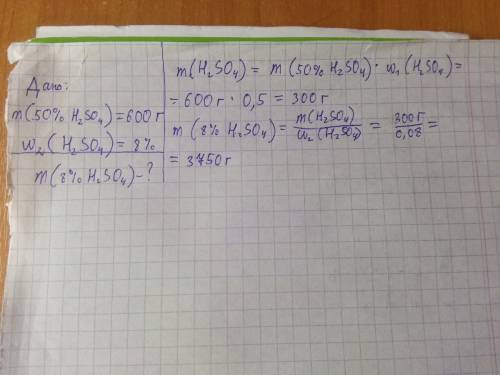 Дано:
m(50% H₂SO₄)=600г
w₂(H₂SO₄)= 8%
m(8% H₂SO₄)-?
m(H₂SO₄)= m(50% H₂SO₄)· w₁(H₂SO₄)=
= 600г · 0,5 = 300г
m(8% H₂SO₄)= m(H₂SO₄)/w₂(H₂SO₄) = 300г/0,08 =
= 3750г